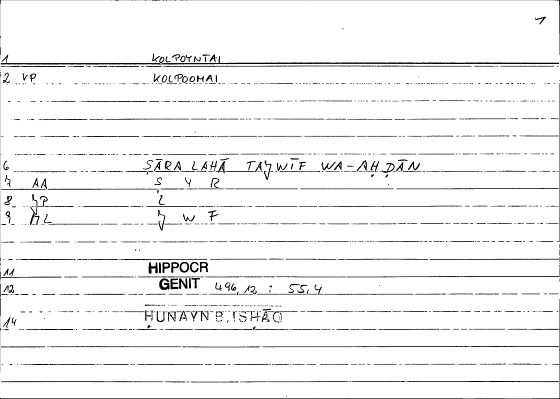 1
1 KOLPOYNTAI
2 VP KOLPOOMAI
6 ṢĀRA LAHĀ TAǦWĪF WA-AḤḌĀN
7 AA Ṣ Y R
8 ǦP L
9 ǦW F
11 HIPPOCR
12 GENIT 496,12 : 55,4
14 ḤUNAYN B. ISḤĀQ